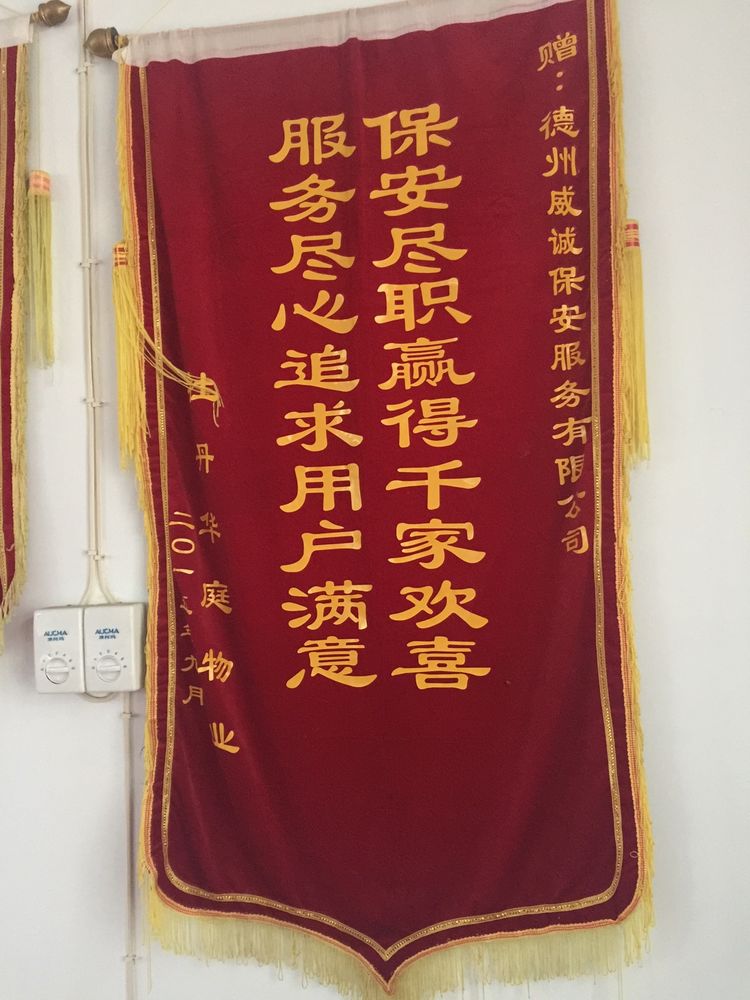 赠：德州威诚保安服务有限公司
保安尽职赢得千家欢喜
服务尽心追求用户满意
丹华庭物业
二〇一 年九月
AUCMA
澳柯玛
AUCMA
澳柯玛